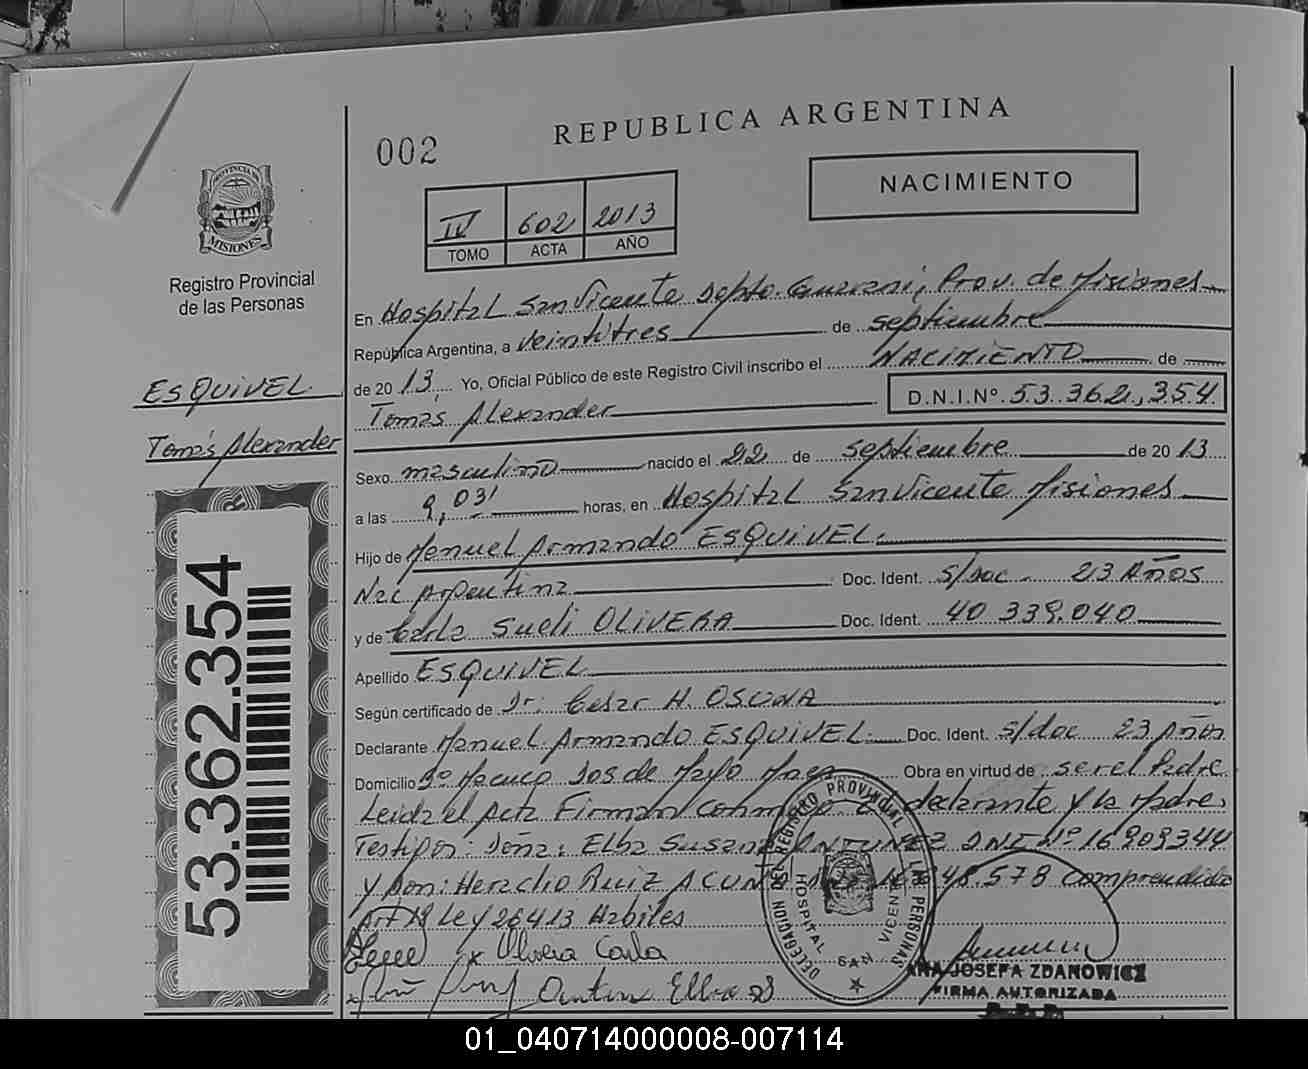 002
REPUBLICA ARGENTINA
NACIMIENTO
IV 602 2013
TOMO ACTA AÑO
PROVINCIA DE
MISIONES
Registro Provincial
de las Personas
ESQUIVEL
Tomás Alexander
53.362.354
En Hospital San Vicente Depto. Guarani, Prov. de Misiones
República Argentina, a veintitres de septiembre
de 2013. Yo, Oficial Público de este Registro Civil inscribo el NACIMIENTO de
Tomás Alexander D.N.I.Nº. 53.362.354
Sexo masculino nacido el 22 de septiembre de 2013
a las 9,03' horas, en Hospital San Vicente Misiones
Hijo de Manuel Armando ESQUIVEL.
Nac Argentina Doc. Ident. S/doc - 23 Años
y de Carla Sueli OLIVERA Doc. Ident. 40.339.040
Apellido ESQUIVEL
Según certificado de Dr. Cesar H. OSUNA
Declarante Manuel Armando ESQUIVEL Doc. Ident. s/doc 23 Años
Domicilio Dos de Mayo Obra en virtud de ser el Padre
Leida el Acta Firman conmigo declarante y la Madre,
Testigos: Doña: Elba Susana ANTUNEZ DNI Nº 16909344
y Don: Heraclio Ruiz ACUÑA 48.578 comprendido
Art Ley 26413 Habiles
x Olivera Carla
Elba S
DELEGACION DEL REGISTRO PROVINCIAL DE LAS PERSONAS
HOSPITAL SAN VICENTE
ANA JOSEFA ZDANOWICZ
FIRMA AUTORIZADA
01_040714000008-007114